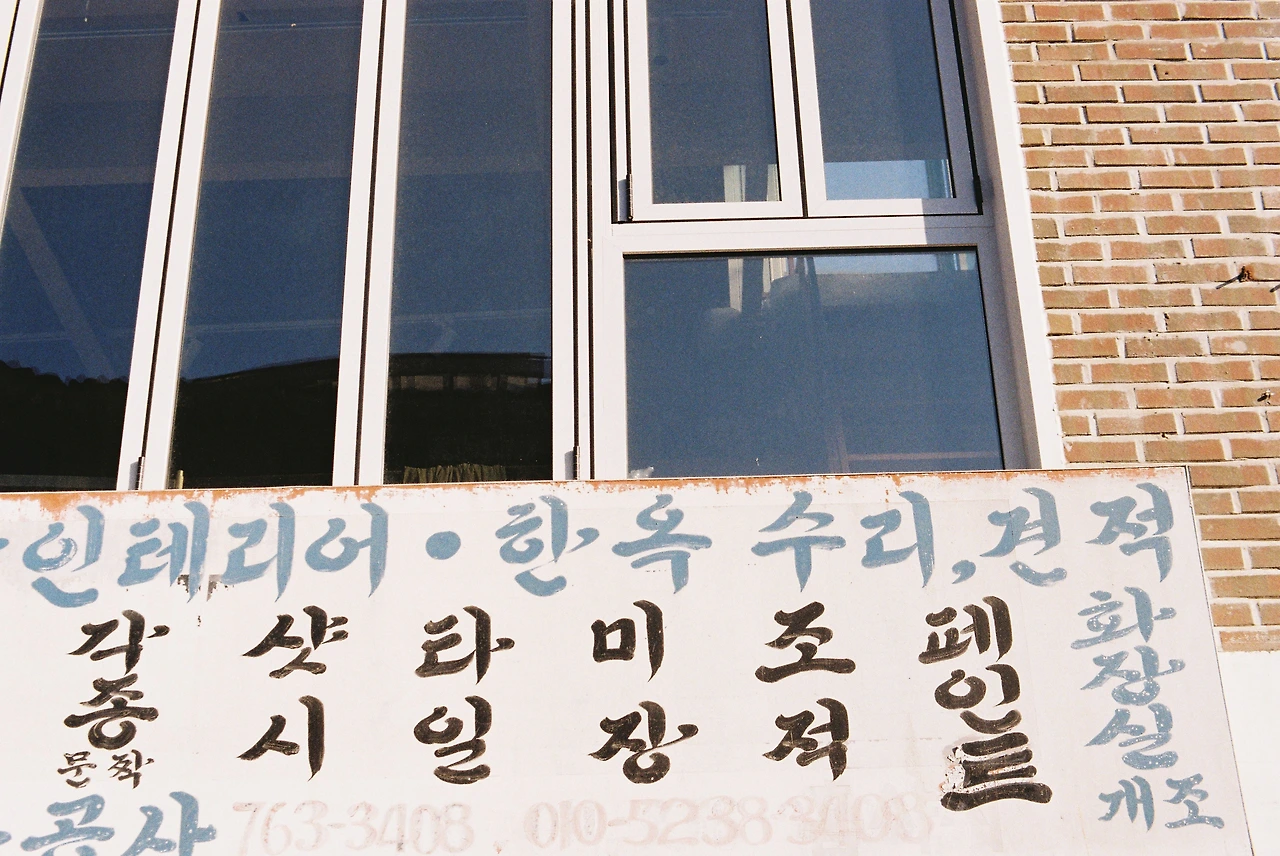 인테리어·한옥 수리,견적
각종문짝
샷시
타일
미장
조적
페인트
화장실개조
공사 763-3408 010-5238 3408